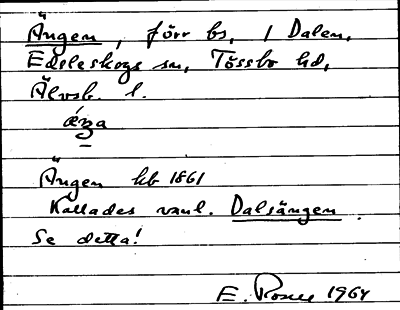 Ängen, förr bs, i Dalen,
Edsleskogs sn, Tössbo hd,
Älvsb. l.
Ängen hb 1861
Kallades vanl. Dalsängen.
Se detta!
E. 1964